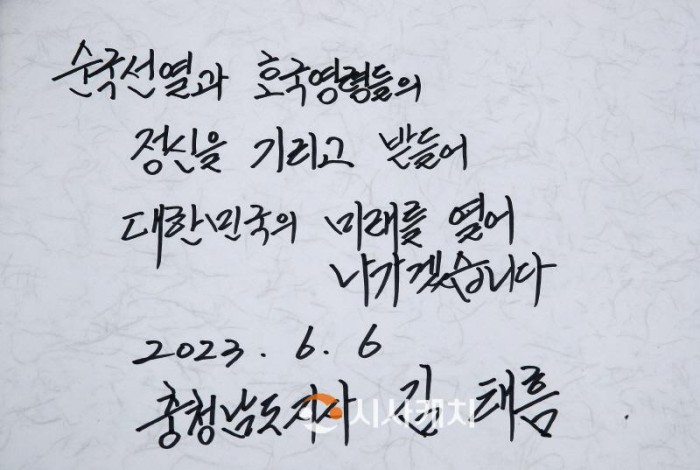 순국선열과 호국영령들의
정신을 기리고 받들어
대한민국의 미래를 열어
나가겠습니다
2023. 6. 6
충청남도지사 김태흠
시사캐치